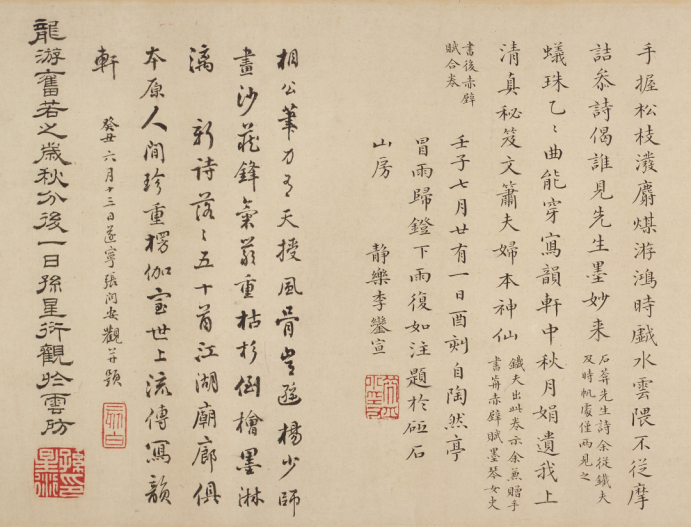 手握松枝潑麝煤游鴻時戲水雲隈不從摩
詰叅詩偈誰見先生墨妙来
石葊先生詩余從鐵夫
及時帆處僅兩見之
蟻珠乙〻曲能穿寫韻軒中秋月娟遺我上
清真秘笈文簫夫婦本神仙
鐵夫出此卷示余兼贈手
書前赤壁賦墨琴女史
書後赤壁
賦合卷
壬子七月廿有一日酉刻自陶然亭
冒雨歸鐙下雨復如注題於砬石
山房 靜樂李鑾宣
相公筆力有天授風骨豈遜楊少師
畫沙藏鋒氣嚴重枯杉倒檜墨淋
漓 新詩落〻五十首江湖廟廊俱
本原人間珍重楞伽室世上流傳寫韻
軒 癸丑六月十三日遂寧張問安觀并題
亥白
龍游奮若之歲秋分後一日孫星衍觀於雲防
孫印
星衍